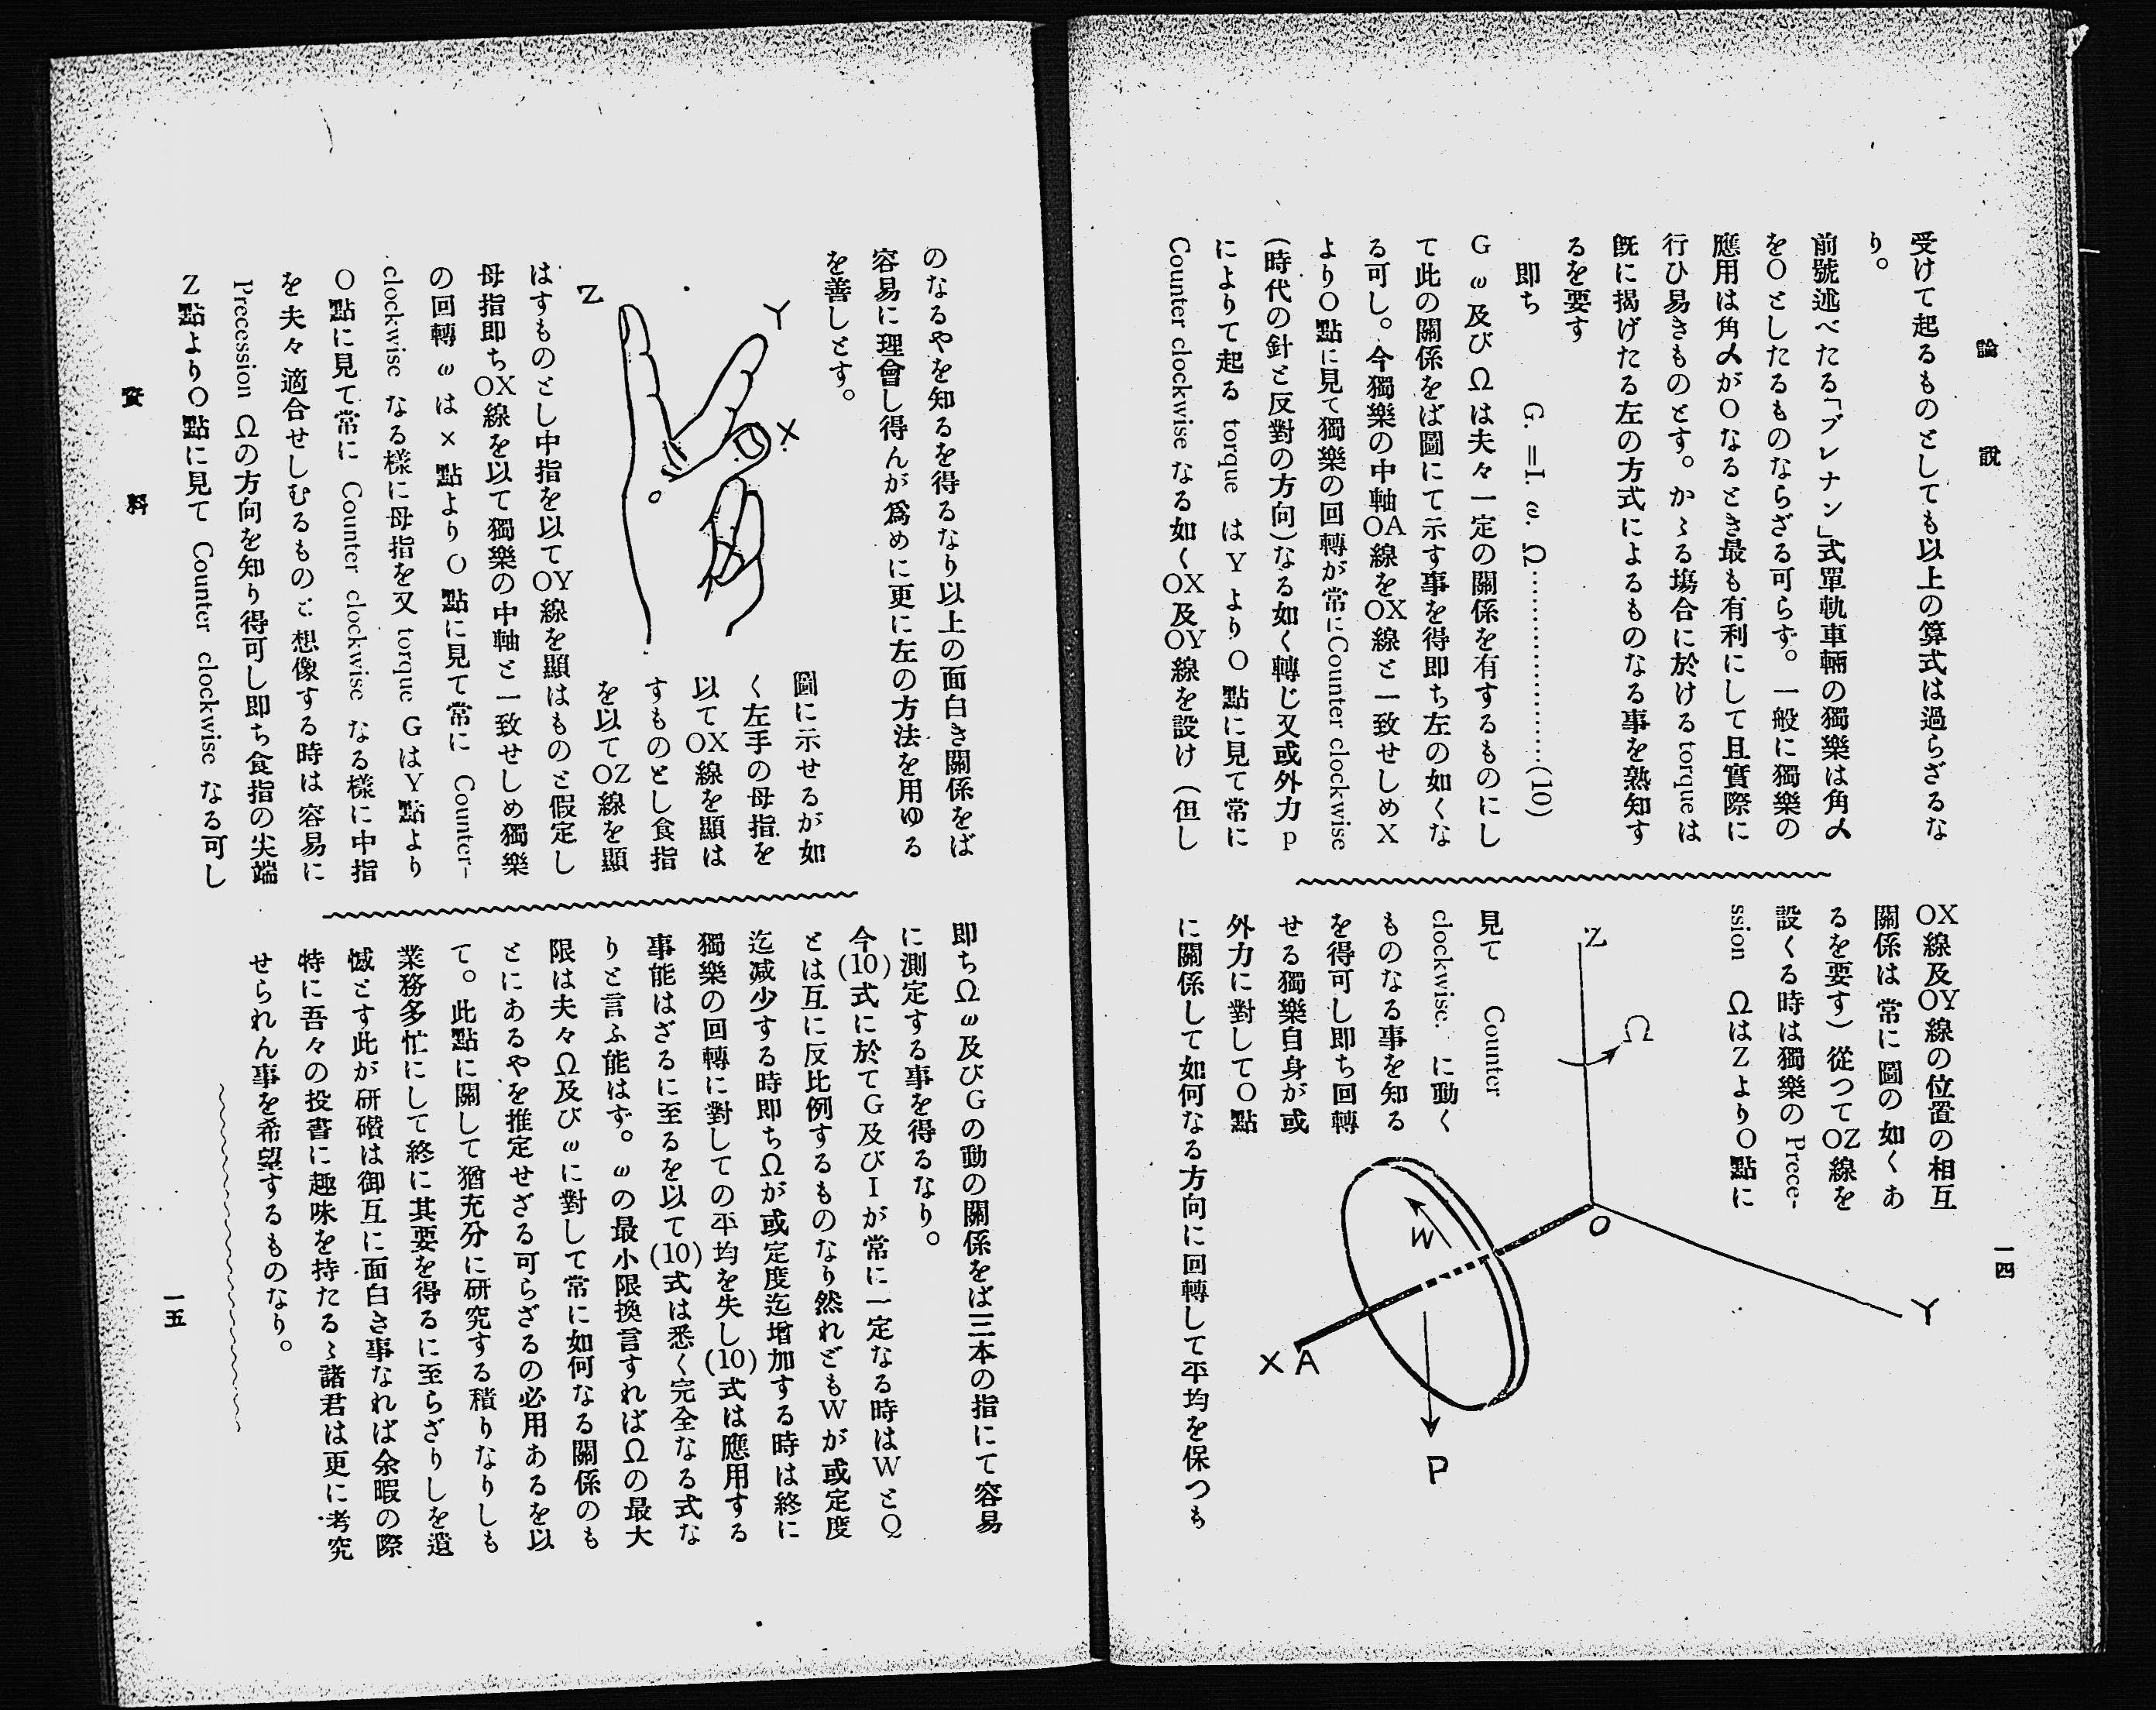 論說
一四
受けて起るものとしても以上の算式は過らざるな
り。
前號述べたる「ブレナン」式單軌車輛の獨樂は角〆
をOとしたるものならざる可らず。一般に獨樂の
應用は角〆がOなるとき最も有利にして且實際に
行ひ易きものとす。かゝる塲合に於ける torque は
旣に揭げたる左の方式によるものなる事を熟知す
るを要す
即ち G. =I. ω. Ω……………………(10)
G ω 及び Ω は夫々一定の關係を有するものにし
て此の關係をば圖にて示す事を得即ち左の如くな
る可し。今獨樂の中軸OA線をOX線と一致せしめX
よりO點に見て獨樂の回轉が常にCounter clockwise
(時代の針と反對の方向)なる如く轉じ又或外力 p
によりて起る torque は Y より O 點に見て常に
Counter clockwise なる如くOX及OY線を設け (但し
OX線及OY線の位置の相互
關係は常に圖の如くあ
るを要す) 從つてOZ線を
設くる時は獨樂の Prece-
ssion ΩはZよりO點に
見て Counter
clockwise. に動く
ものなる事を知る
を得可し即ち回轉
せる獨樂自身が或
外力に對してO點
に關係して如何なる方向に回轉して平均を保つも
Z
Ω
O
Y
W
X A
P
のなるやを知るを得るなり以上の面白き關係をば
容易に理會し得んが爲めに更に左の方法を用ゆる
を善しとす。
Z
Y
X
O
圖に示せるが如
く左手の母指を
以てOX線を顯は
すものとし食指
を以てOZ線を顯
はすものとし中指を以てOY線を顯はものと假定し
母指即ちOX線を以て獨樂の中軸と一致せしめ獨樂
の回轉 ω は × 點より O 點に見て常に Counter-
clockwise なる樣に母指を又 torque G はY點より
O 點に見て常に Counter clockwise なる樣に中指
を夫々適合せしむるものと想像する時は容易に
Precession Ωの方向を知り得可し即ち食指の尖端
Z點よりO點に見て Counter clockwise なる可し
即ちΩω及びGの動の關係をば三本の指にて容易
に測定する事を得るなり。
今(10)式に於てG及びIが常に一定なる時はWとQ
とは互に反比例するものなり然れどもWが或定度
迄減少する時即ちΩが或定度迄增加する時は終に
獨樂の回轉に對しての平均を失し(10)式は應用する
事能はざるに至るを以て(10)式は悉く完全なる式な
りと言ふ能はず。ωの最小限換言すればΩの最大
限は夫々Ω及びωに對して常に如何なる關係のも
とにあるやを推定せざる可らざるの必用あるを以
て。此點に關して猶充分に研究する積りなりしも
業務多忙にして終に其要を得るに至らざりしを遺
憾とす此が硏礎は御互に面白き事なれば余暇の際
特に吾々の投書に趣味を持たるゝ諸君は更に考究
せられん事を希望するものなり。
資料
一五